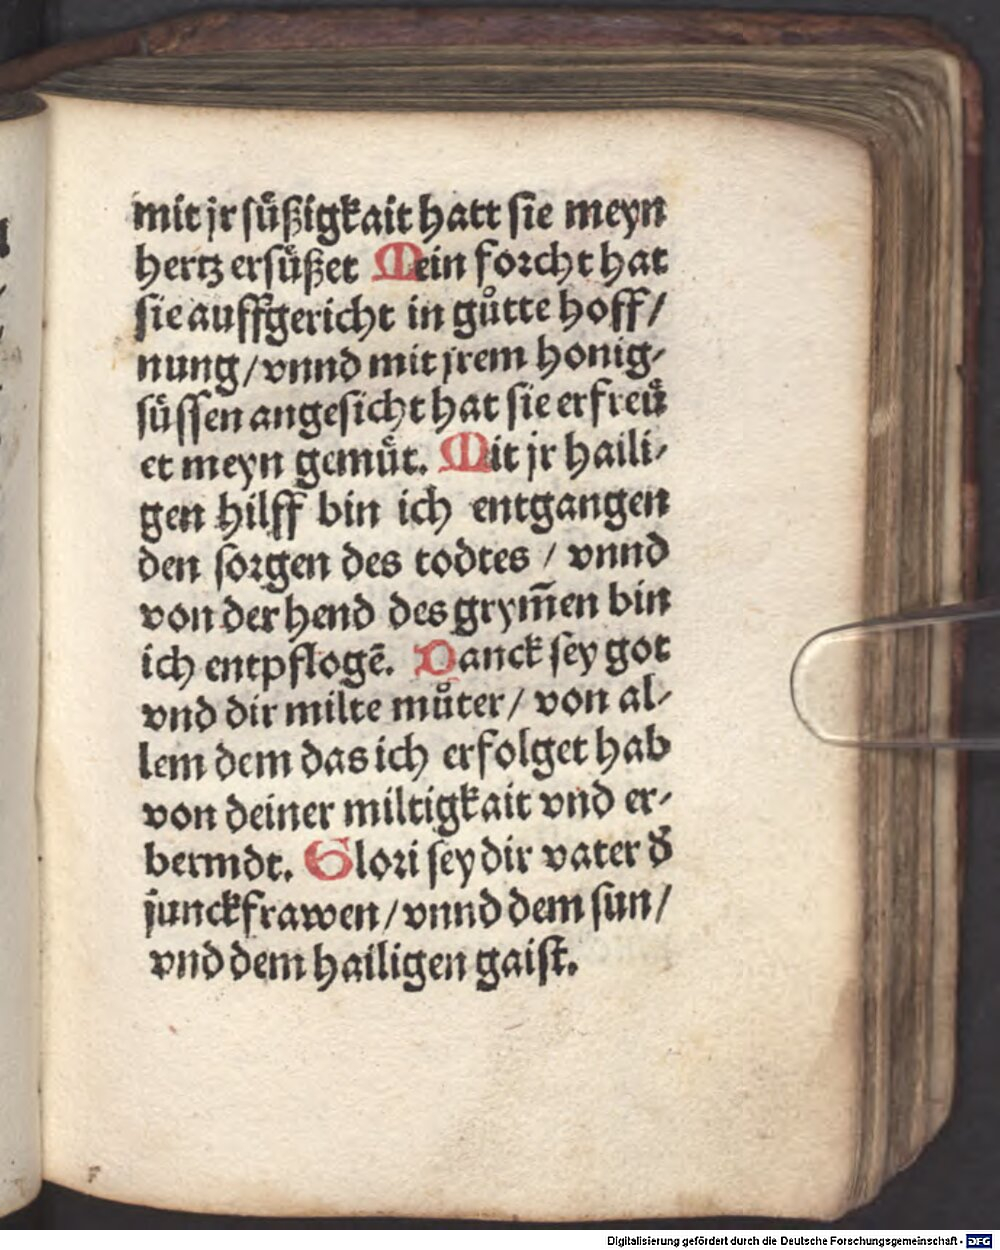 mit jr süͤßigkait hatt sie meyn
hertz ersuͤßet Mein forcht hat
sie auffgericht in guͦtte hoff/
nung/vnnd mit jrem honig-
suͤssen angesicht hat sie erfreuͤ
et meyn gemuͤt. Mit jr haili-
gen hilff bin ich entgangen
den sorgen des todtes / vnnd
von der hend des grym̃en bin
ich entpflogẽ. Danck sey got
vnd dir milte muͦter/ von al-
lem dem das ich erfolget hab
von deiner miltigkait vnd er-
bermdt. Glori sey dir vater đ
junckfrawen/vnnd dem sun/
vnd dem hailigen gaist.
Digitalisierung gefördert durch die Deutsche Forschungsgemeinschaft - DFG